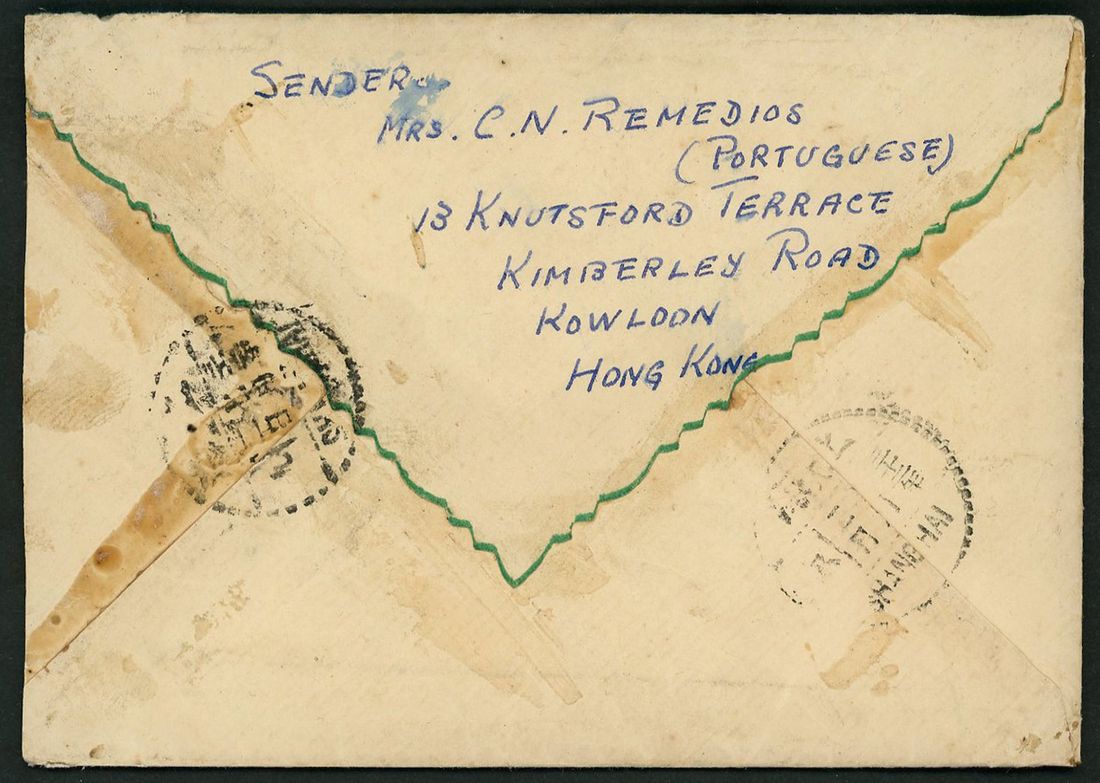 SENDER
MRS. C. N. REMEDIOS
(PORTUGUESE)
13 KNUTSFORD TERRACE
KIMBERLEY ROAD
KOWLOON
HONG KONG
SHANGHAI